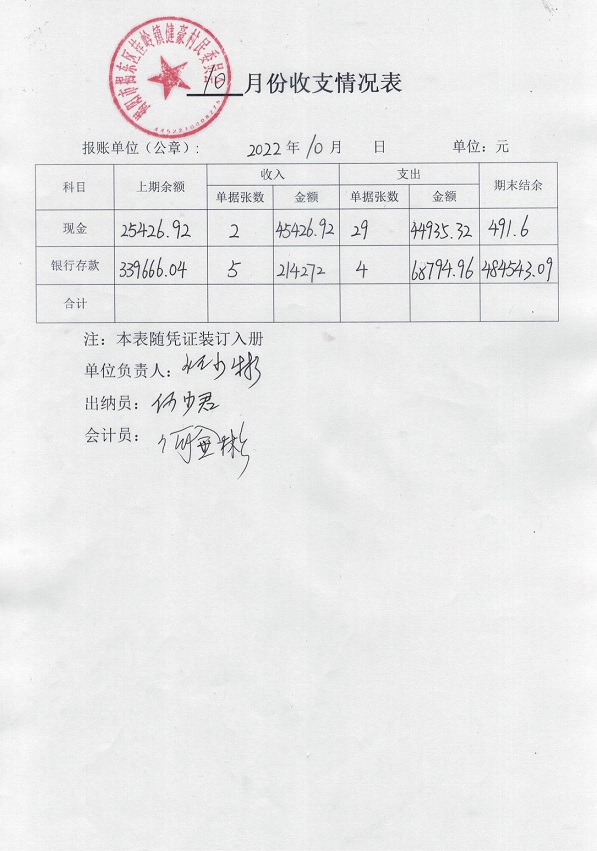 揭阳市揭东区桂岭镇健豪村民委员会
10月份收支情况表
报账单位（公章）： 2022年10月 日 单位：元
科目 上期余额 收入 支出 期末结余
单据张数 金额 单据张数 金额
现金 25426.92 2 45426.92 29 44935.32 491.6
银行存款 339666.04 5 214272 4 68794.96 484543.09
合计
注：本表随凭证装订入册
单位负责人：
出纳员：何少君
会计员：